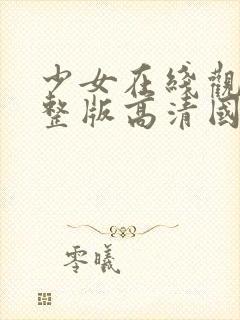 少女在綫觀
整版高清國
零曦